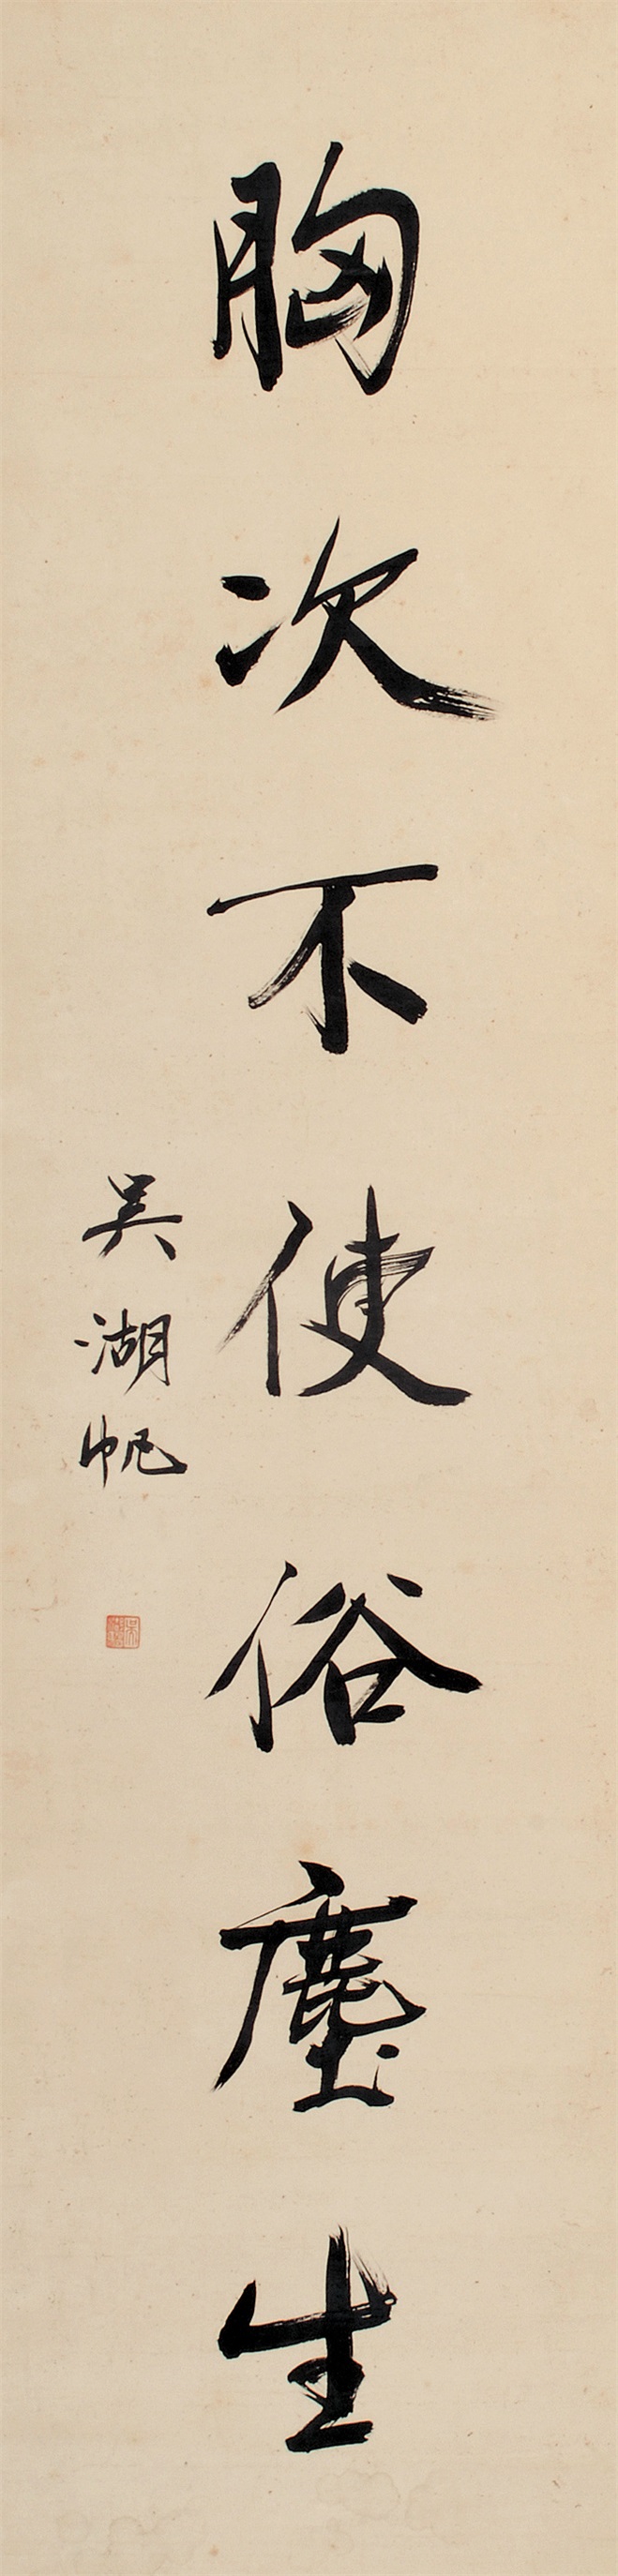 胸次不使俗塵生
吴湖帆